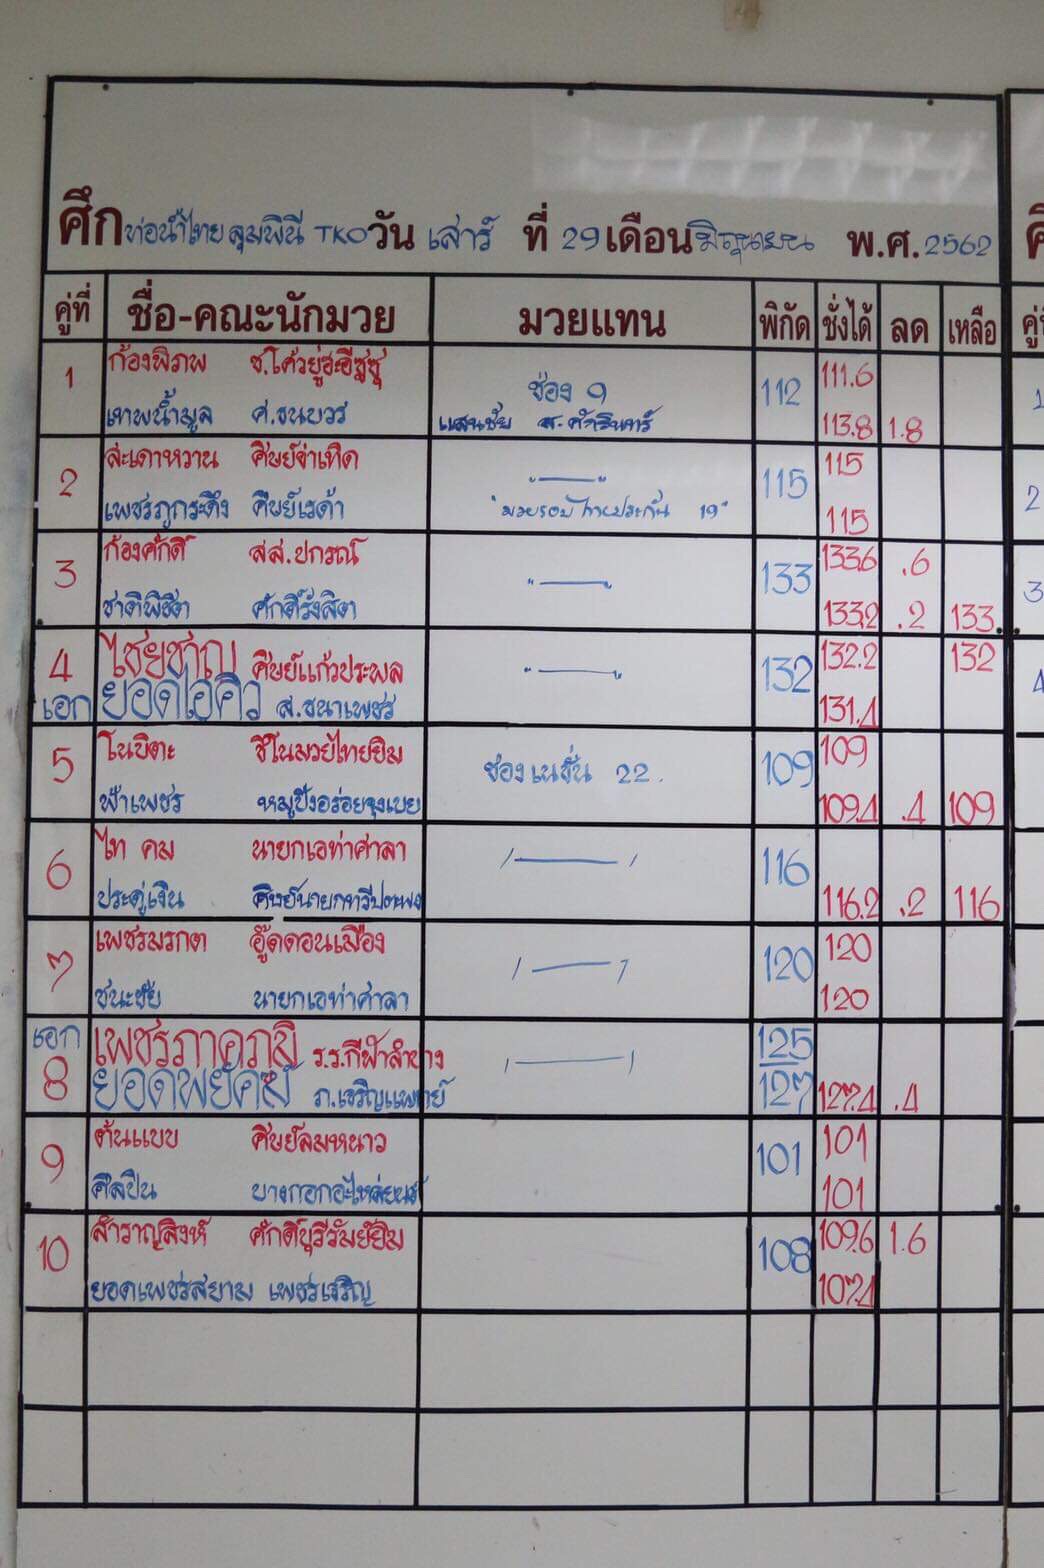 ศึก ท่อน้ำไทย ลุมพินี TKO วัน เสาร์ ที่ 29 เดือน มิถุนายน พ.ศ. 2562
คู่ที่ ชื่อ-คณะนักมวย มวยแทน พิกัด ชั่งได้ ลด เหลือ
1 ก้องพิภพ ช่อง 9 112 111.6
เทพน้ำมูล ศ.ธนบวร แสนชัย 113.8 1.8
2 สะเดาหวาน ศิษย์จ่าเทิด 115 115
เพชรภูกระดึง ศิษย์เรด้า "มวยรอบ ไทยประกัน 19" 115
3 ก้องศักดิ์ ส.ส.ปกรณ์ 133 133.6 .6
ชาติพิชิต ศักดิ์รังสิต 133.2 .2 133
4 ไชยชาญ ศิษย์แก้วประพล 132 132.2 132
เอก ยอดไอคิว ส.ธนาเพชร 131.4
5 โนบิตะ ชิโนมวยไทยยิม ช่อง เนชั่น 22. 109 109
ฟ้าเพชร หมูปิ้งอร่อยจุงเบย 109.4 .4 109
6 ไท คม นายกเอท่าศาลา 116
ประดู่เงิน 116.2 .2 116
7 เพชรมรกต อู๊ดดอนเมือง 120 120
ชนะชัย นายกเอท่าศาลา 120
เอก เพชรภาคภูมิ ร.ร.กีฬาลำปาง 125
8 ยอดพยัคฆ์ ภ.เจริญแพทย์ 127 127.4 .4
9 ต้นแบบ ศิษย์ลมหนาว 101 101
ศิลปิน 101
10 สำราญสิงห์ ศักดิ์บุรีรัมย์ยิม 108 109.6 1.6
ยอดเพชรสยาม เพชรเจริญ 107.4